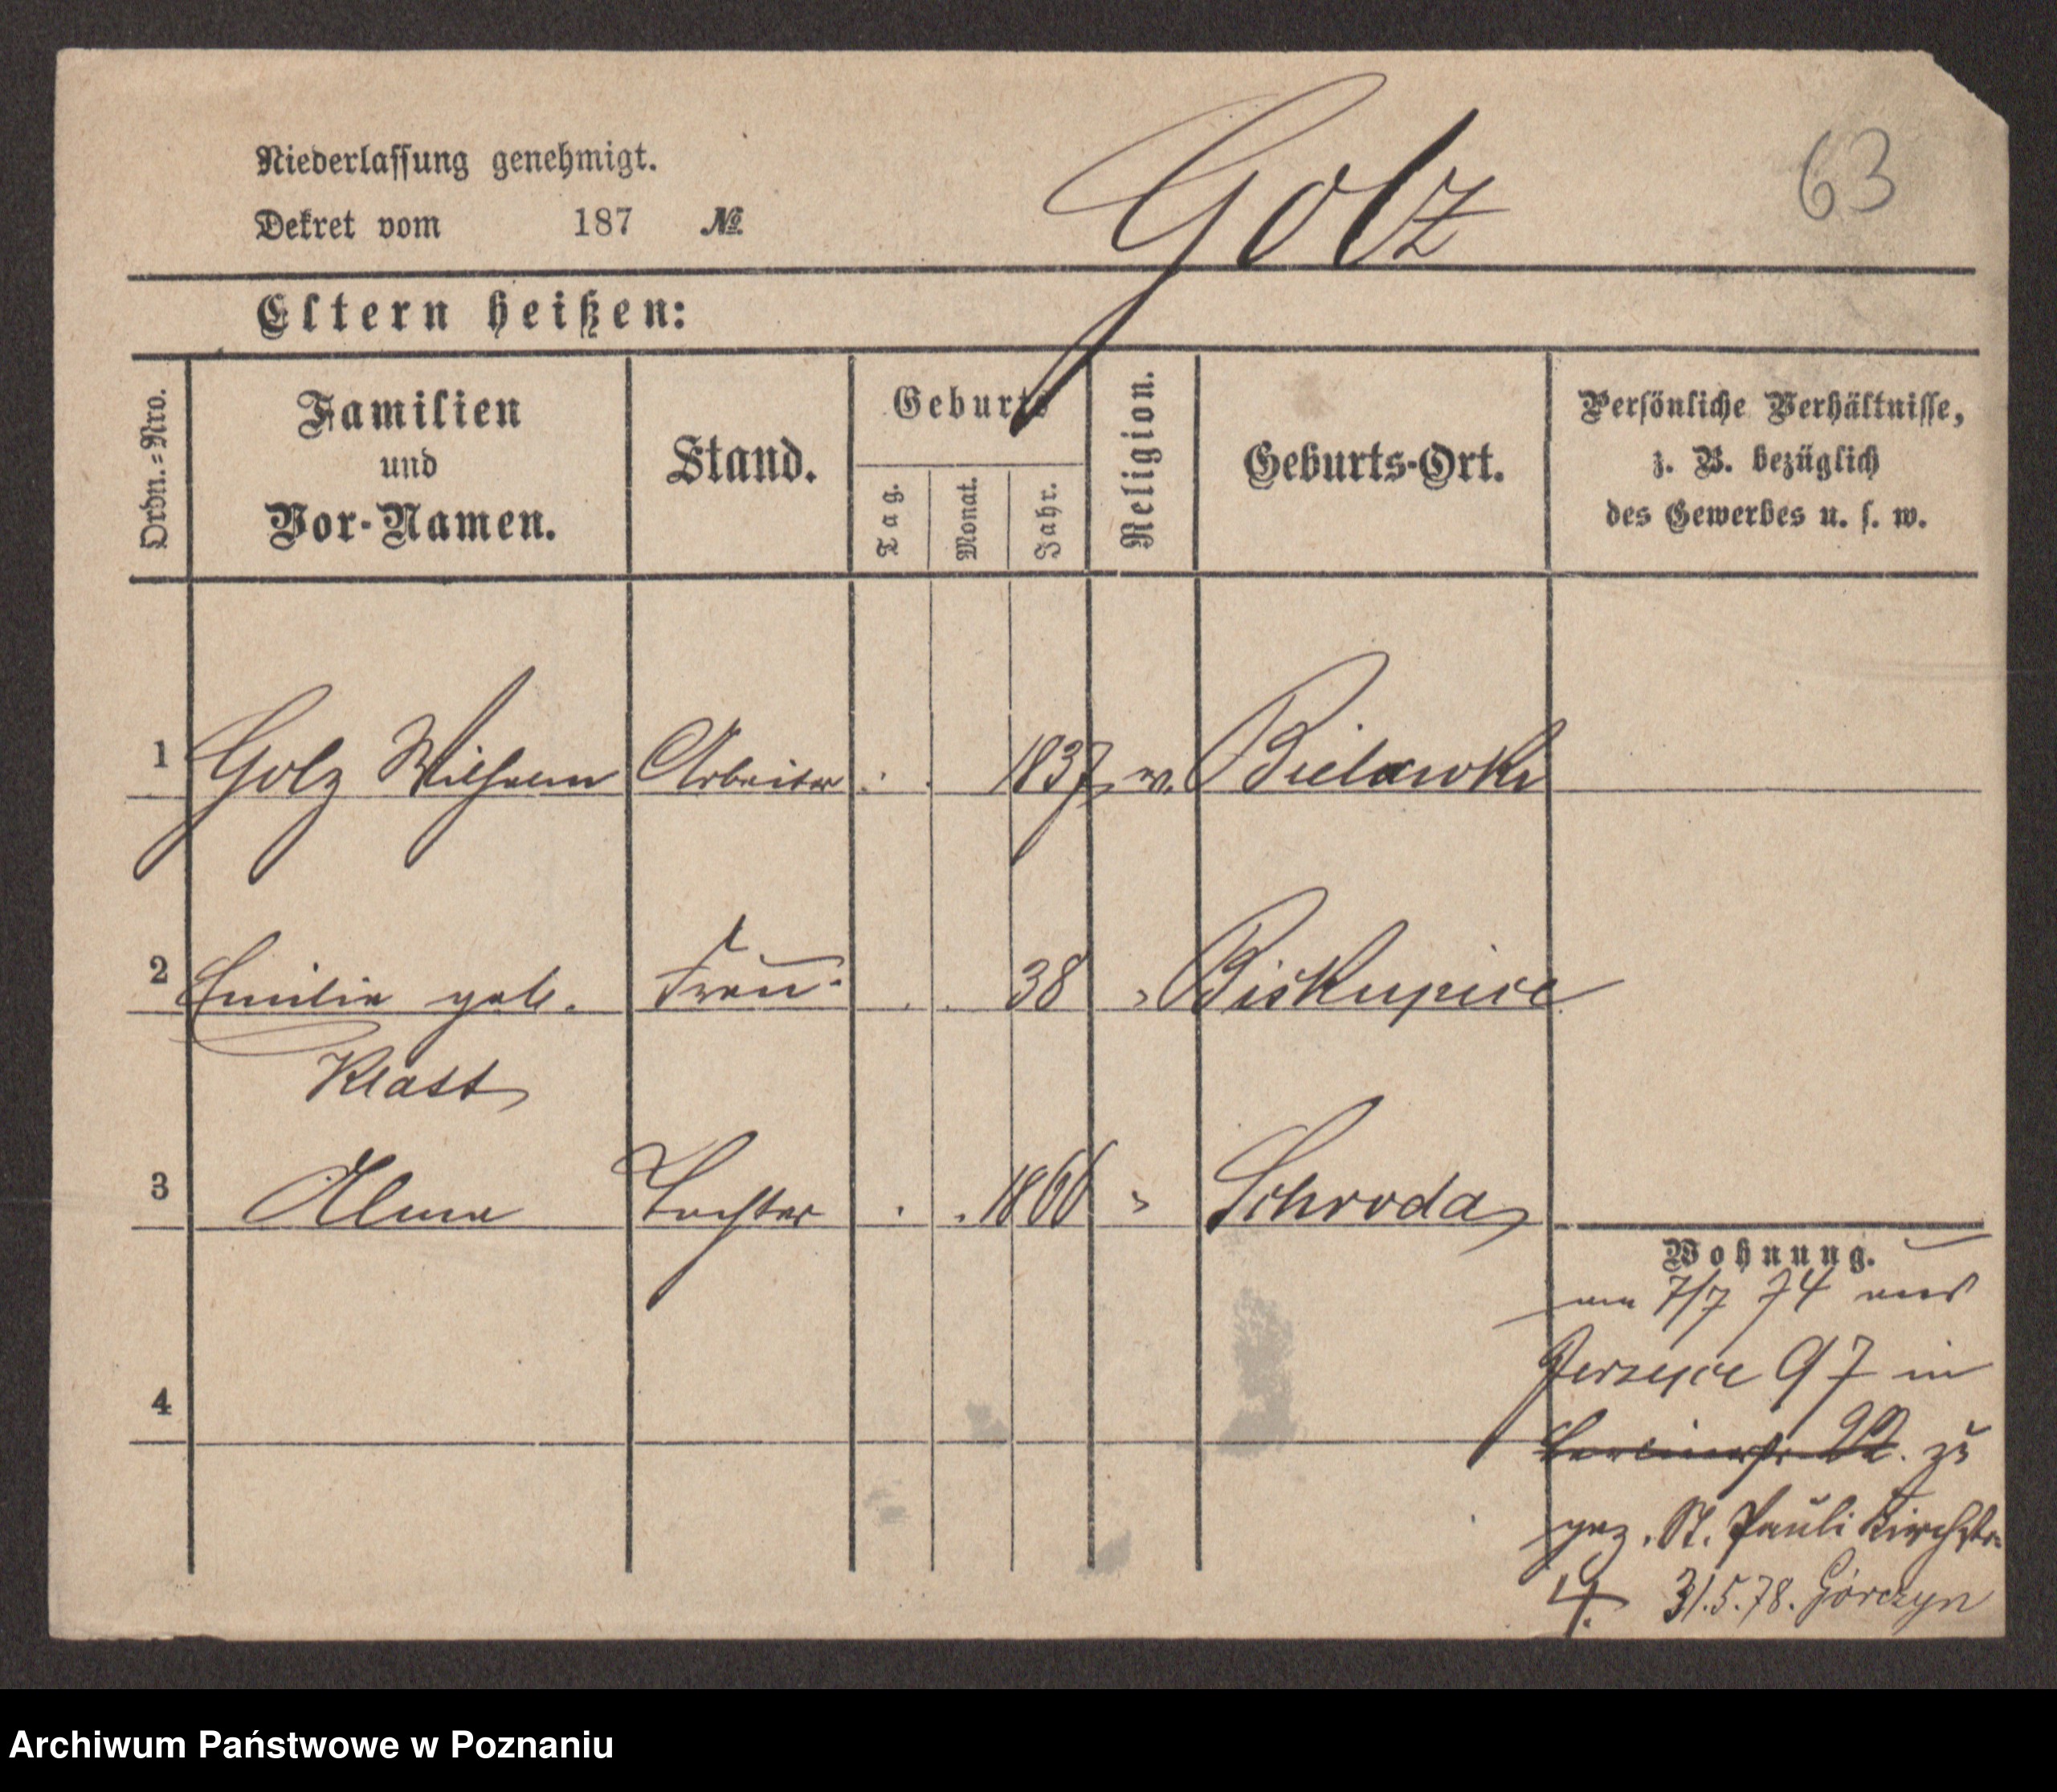 Niederlassung genehmigt.
Dekret vom 187 №
Golz
63
Eltern heißen:
Ordn.=Nro.
Familien
und
Vor-Namen.
Stand.
Geburts
Tag.
Monat.
Jahr.
Religion.
Geburts-Ort.
Persönliche Verhältnisse,
z. B. bezüglich
des Gewerbes u. s. w.
1 Golz Wilhelm Arbeiter . . 1837 ev. Bielawki
2 Emilie geb. Frau . . 38 " Biskupice
Klatt
3 Alma Tochter . . 1866 " Schroda
Wohnung.
7/7 74 aus
Jerzyce 97 in
Berlinerstr. 22. zu
gez. St. Pauli Kirchstr.
4. 31.5.78. Górczyn
4
Archiwum Państwowe w Poznaniu